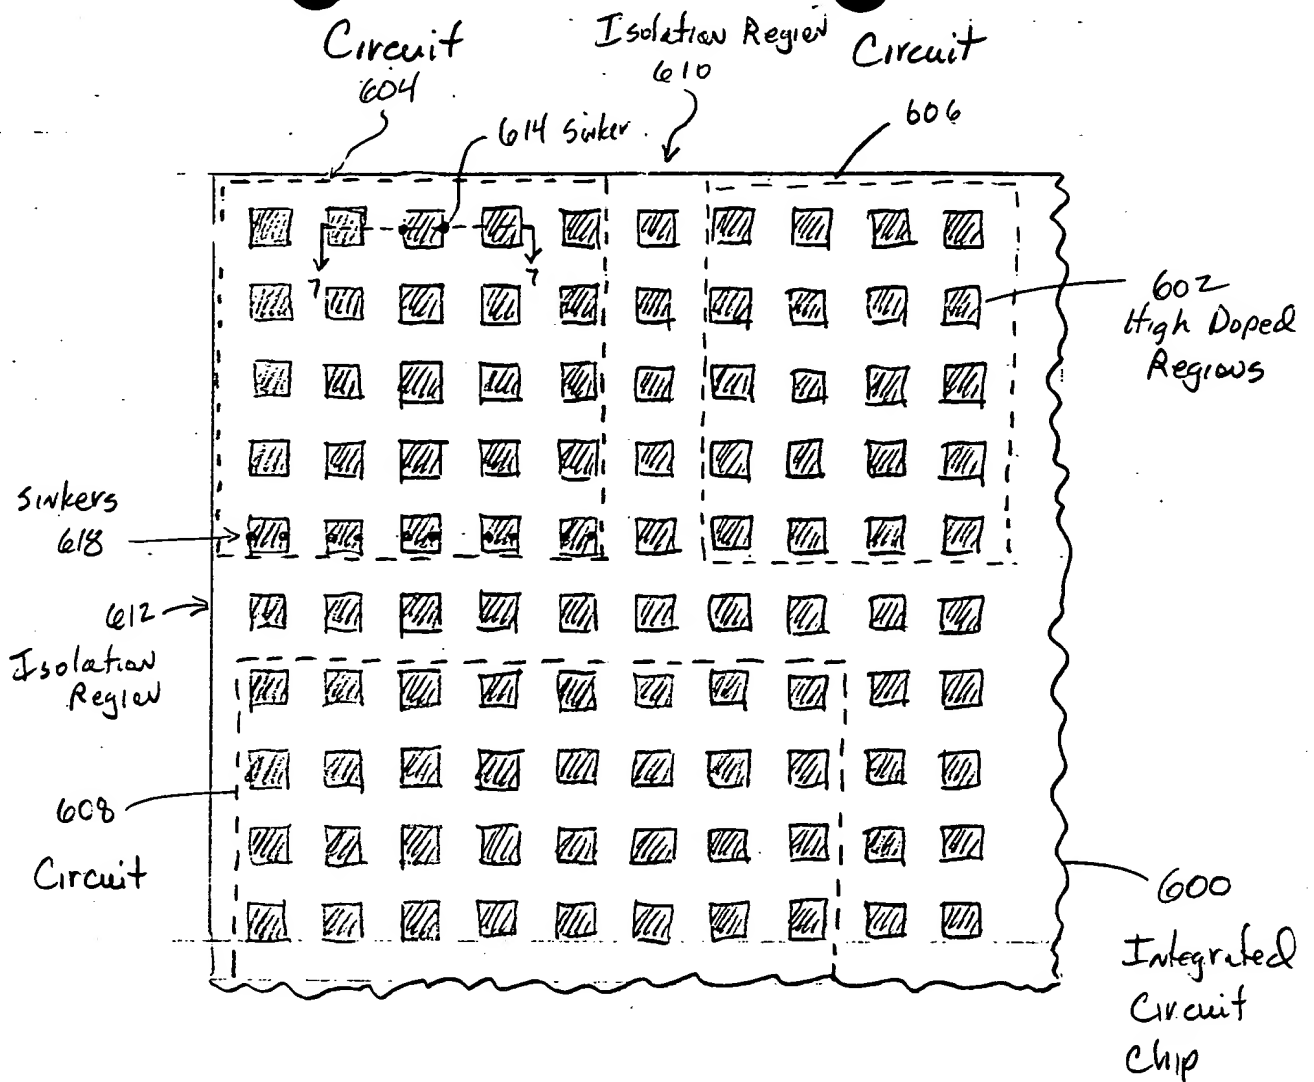 Circuit
604
Isolation Region
610
Circuit
606
614 Sinker
7
7
602
High Doped
Regions
Sinkers
618
612
Isolation
Region
608
Circuit
600
Integrated
Circuit
Chip